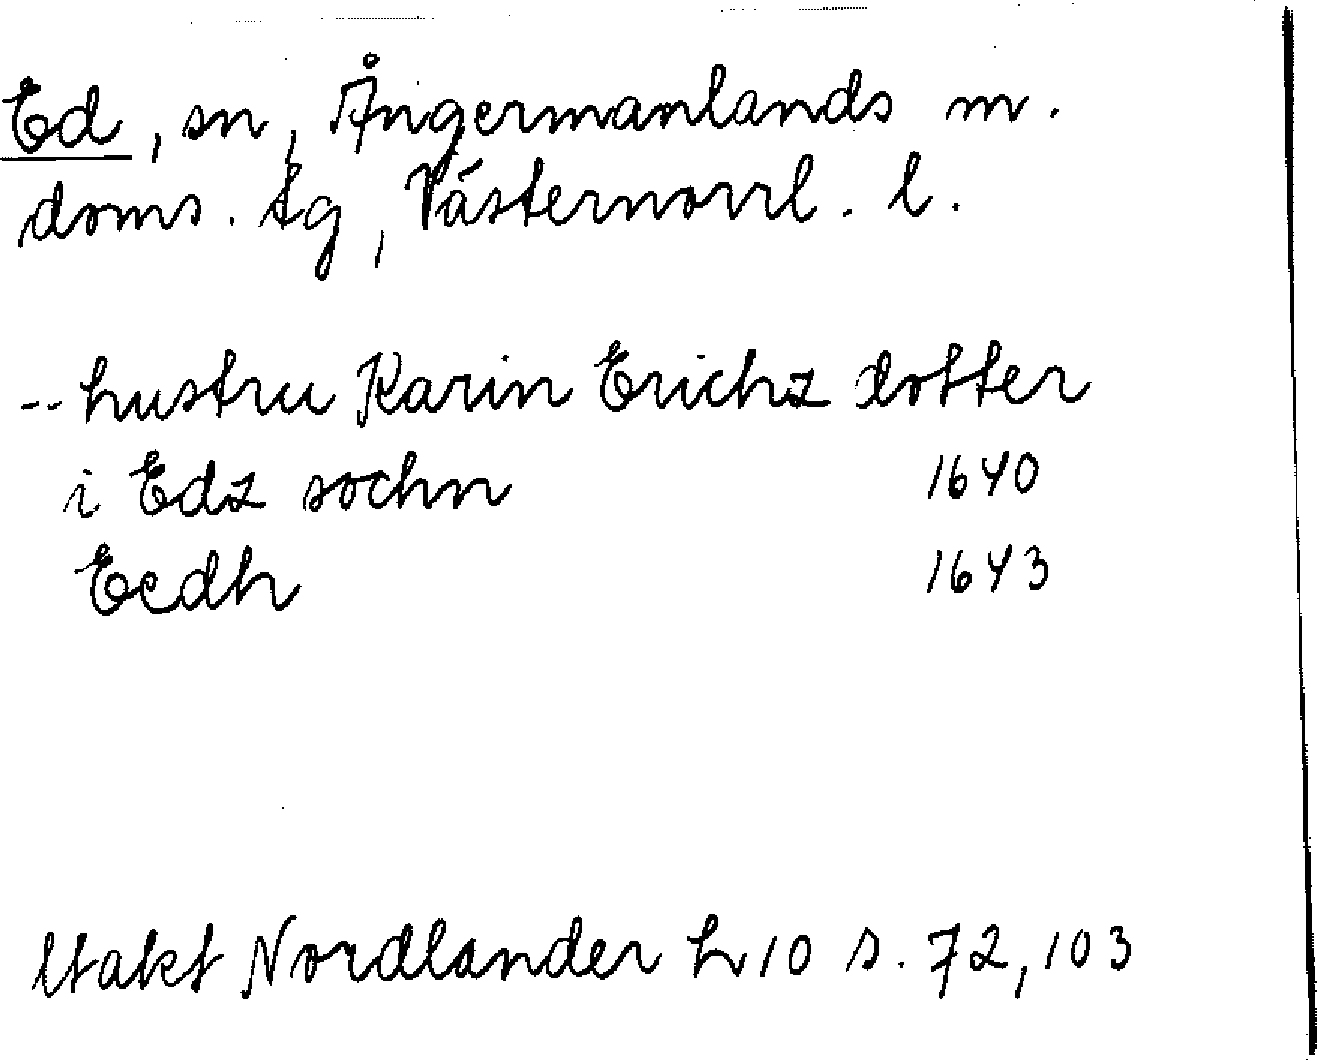 Ed, sn, Ångermanlands m.
doms. tg, Västernorrl. l.
-- hustru Karin Erichz dotter
i Edz sochn 1640
Eedh 1643
Utakt Nordlander h 10 s. 72, 103